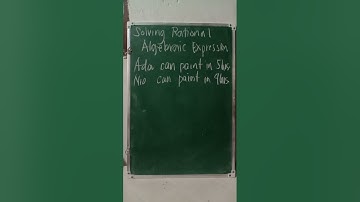 Solving Rational
Algebraic Expression
Ada can paint in 5hrs
Nio can paint in 9hrs